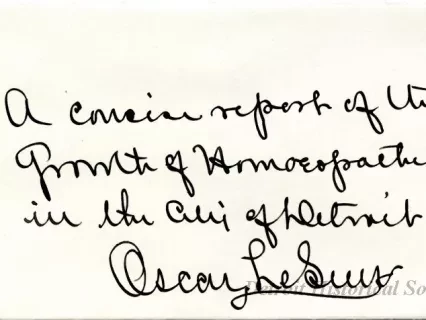 A concise report of the
Growth of Homoeopathy
in the City of Detroit
Oscar LeSeure
Detroit Historical So